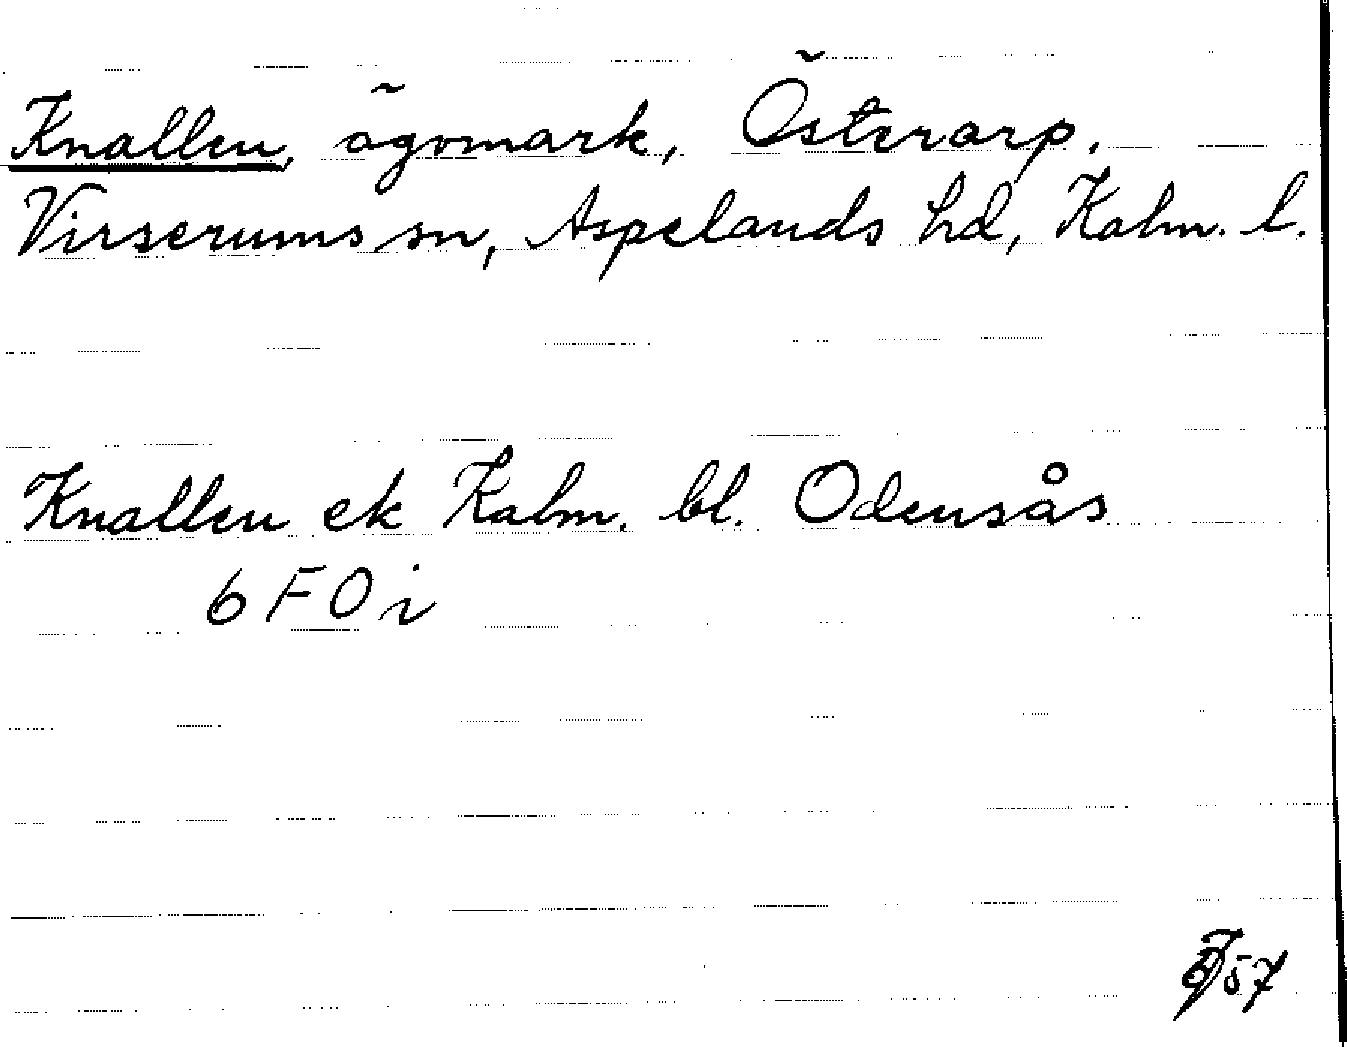 Knallen, ägomark, Österarp,
Virserums sn, Aspelands hd, Kalm. l.
Knallen ek Kalm. bl. Odensås
6 F 0 i
57